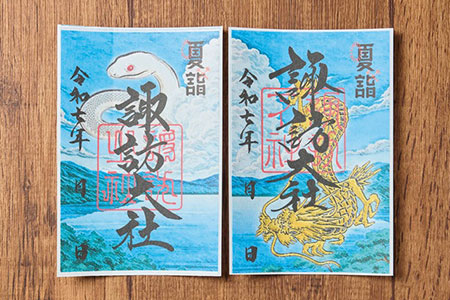 夏詣
諏訪大社
令和七年 月 日
夏詣
諏訪大社
令和七年 月 日